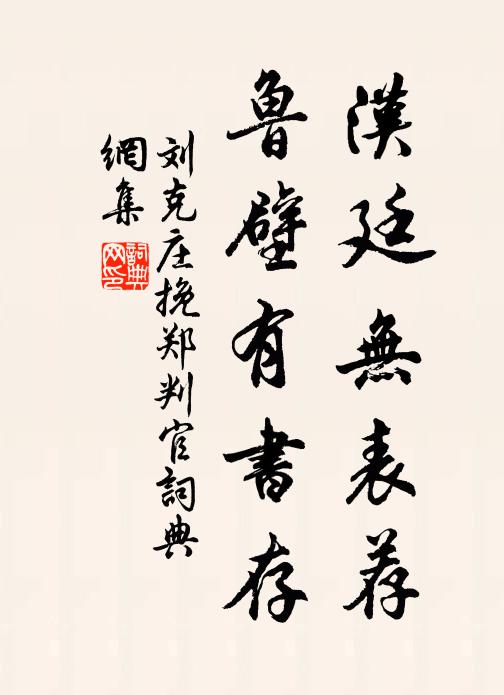 漢廷無表荐
魯壁有書存
刘克庄挽郑判官詞典
網集
詞典網印